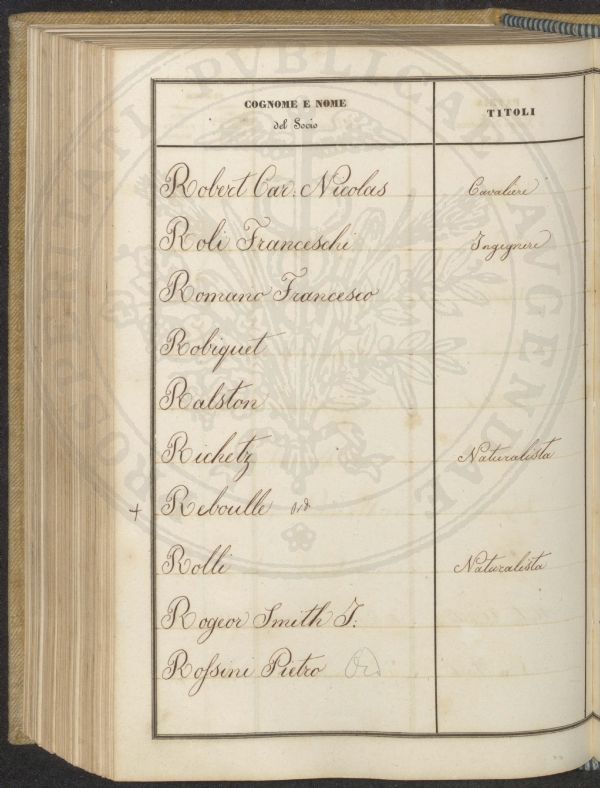 COGNOME E NOME
del Socio
TITOLI
Robert Car: Nicolas Cavaliere
Roli Franceschi Ingegnere
Romano Francesco
Robiquet
Ralston
Richetz Naturalista
+ Reboulle ord
Rolli Naturalista
Rogeor Smith J:
Roſsini Pietro Ord
PROSPERITATI PVBLICAE AVGENDAE